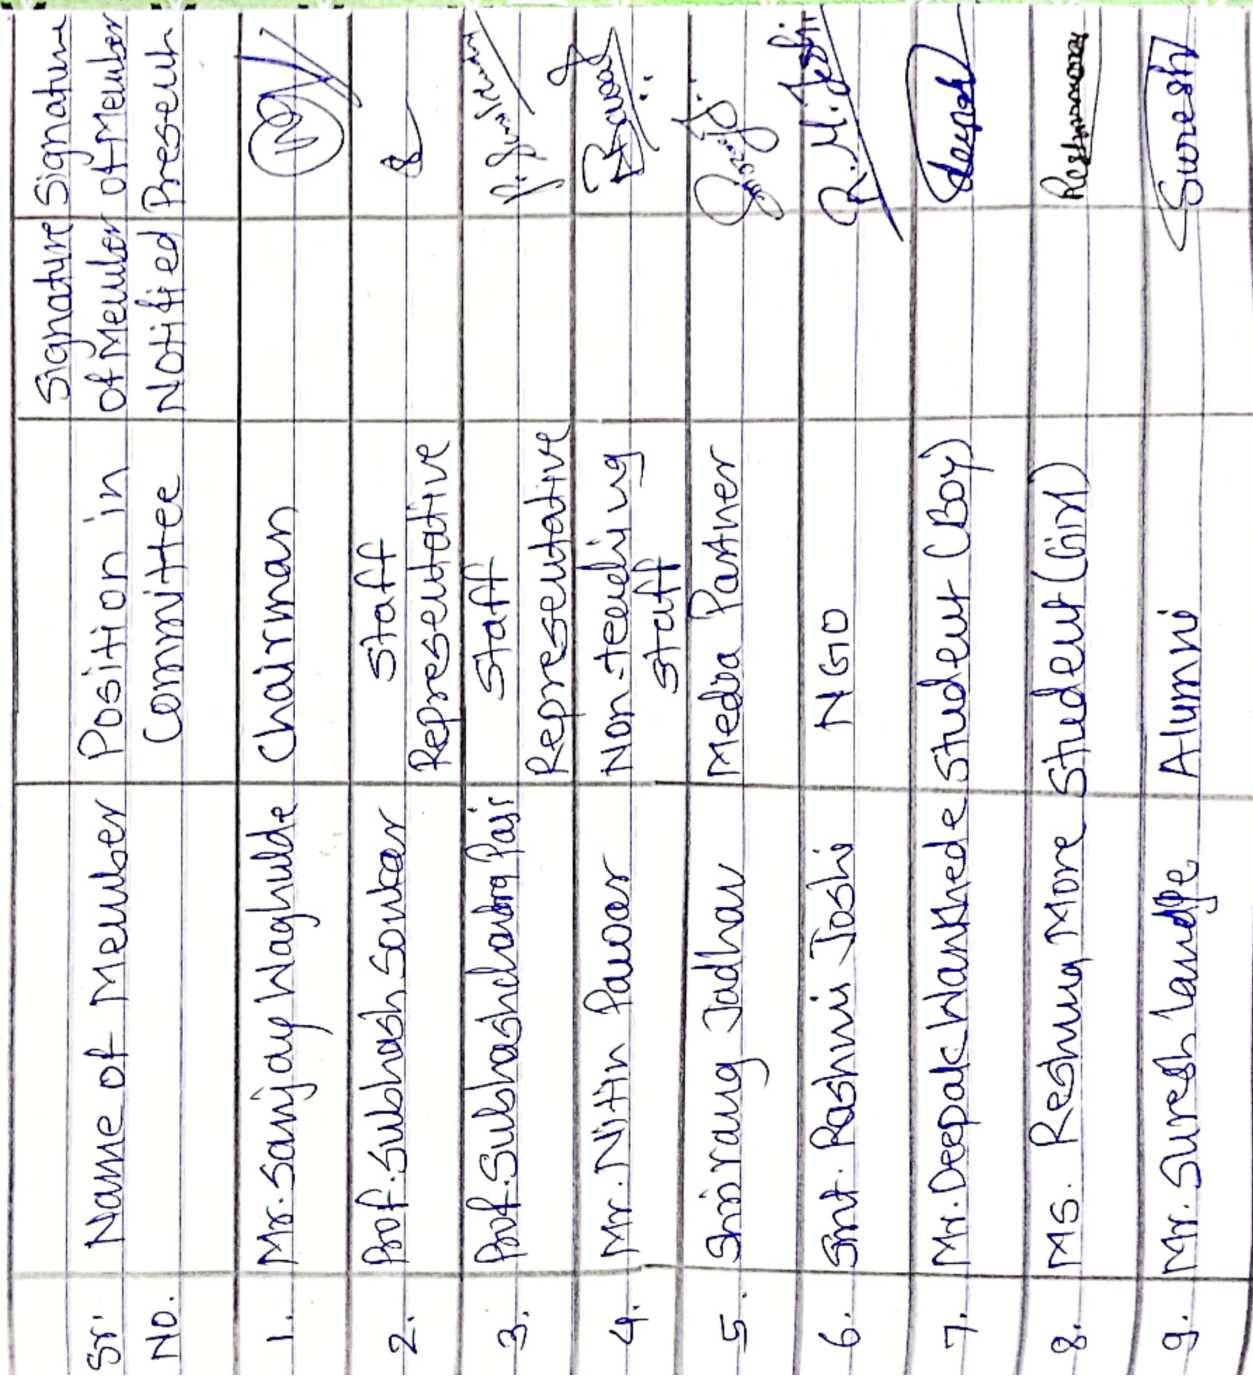 Sr. No. Name of Member Position in Committee Signature of Member Notified Signature of Member Present
1. Mr. Sanjay Waghulde Chairman
2. Prof. Subhash Sonkar Staff Representative
3. Prof. Subhashchandra Pasi Staff Representative
4. Mr. Nitin Pawar Non-teeding staff
5. Shrirang Jadhav Media Partner
6. Smt. Rashmi Joshi NGO R.M.Joshi
7. Mr. Deepak Wankhede Student (Boy) deepak
8. Ms. Reshma More Student (Girl)
9. Mr. Suresh Landge Alumni Suresh